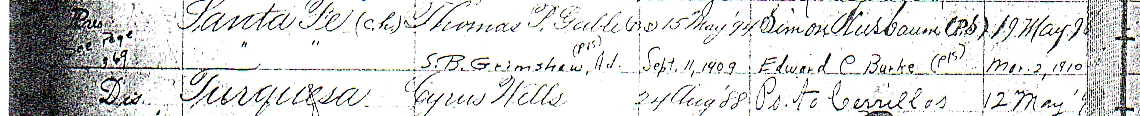 Pres Santa Fe (c.h.) Thomas P. Gable (P.S) 15 May '94 Simon Nusbaum (P.S) 19 May
See Page
969 " " S. B. Grimshaw, Ad. (P&S) Sept. 11, 1909 Edward C Burke (P&S) Mar. 2, 1910
Dis. Turquesa Cyrus Wells 24 Aug '88 Ps. to Cerrillos 12 May '